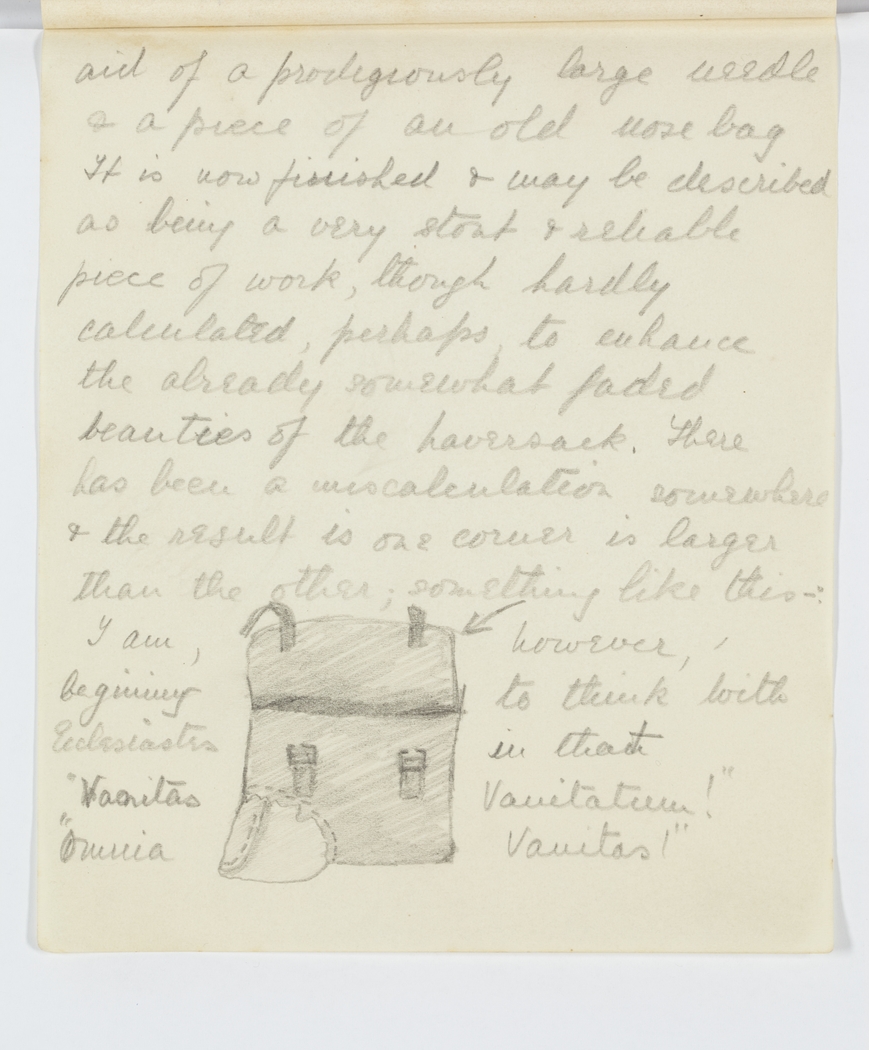 aid of a prodigiously large needle
& a piece of an old nose bag
It is now finished & may be described
as being a very stout & reliable
piece of work, though hardly
calculated, perhaps, to enhance
the already somewhat faded
beauties of the haversack. There
has been a miscalculation somewhere
& the result is one corner is larger
than the other; something like this-:
I am, however,
begining to think with
Ecclesiastes in that
"Vanitas Vanitatum!"
"Omnia Vanitas!"